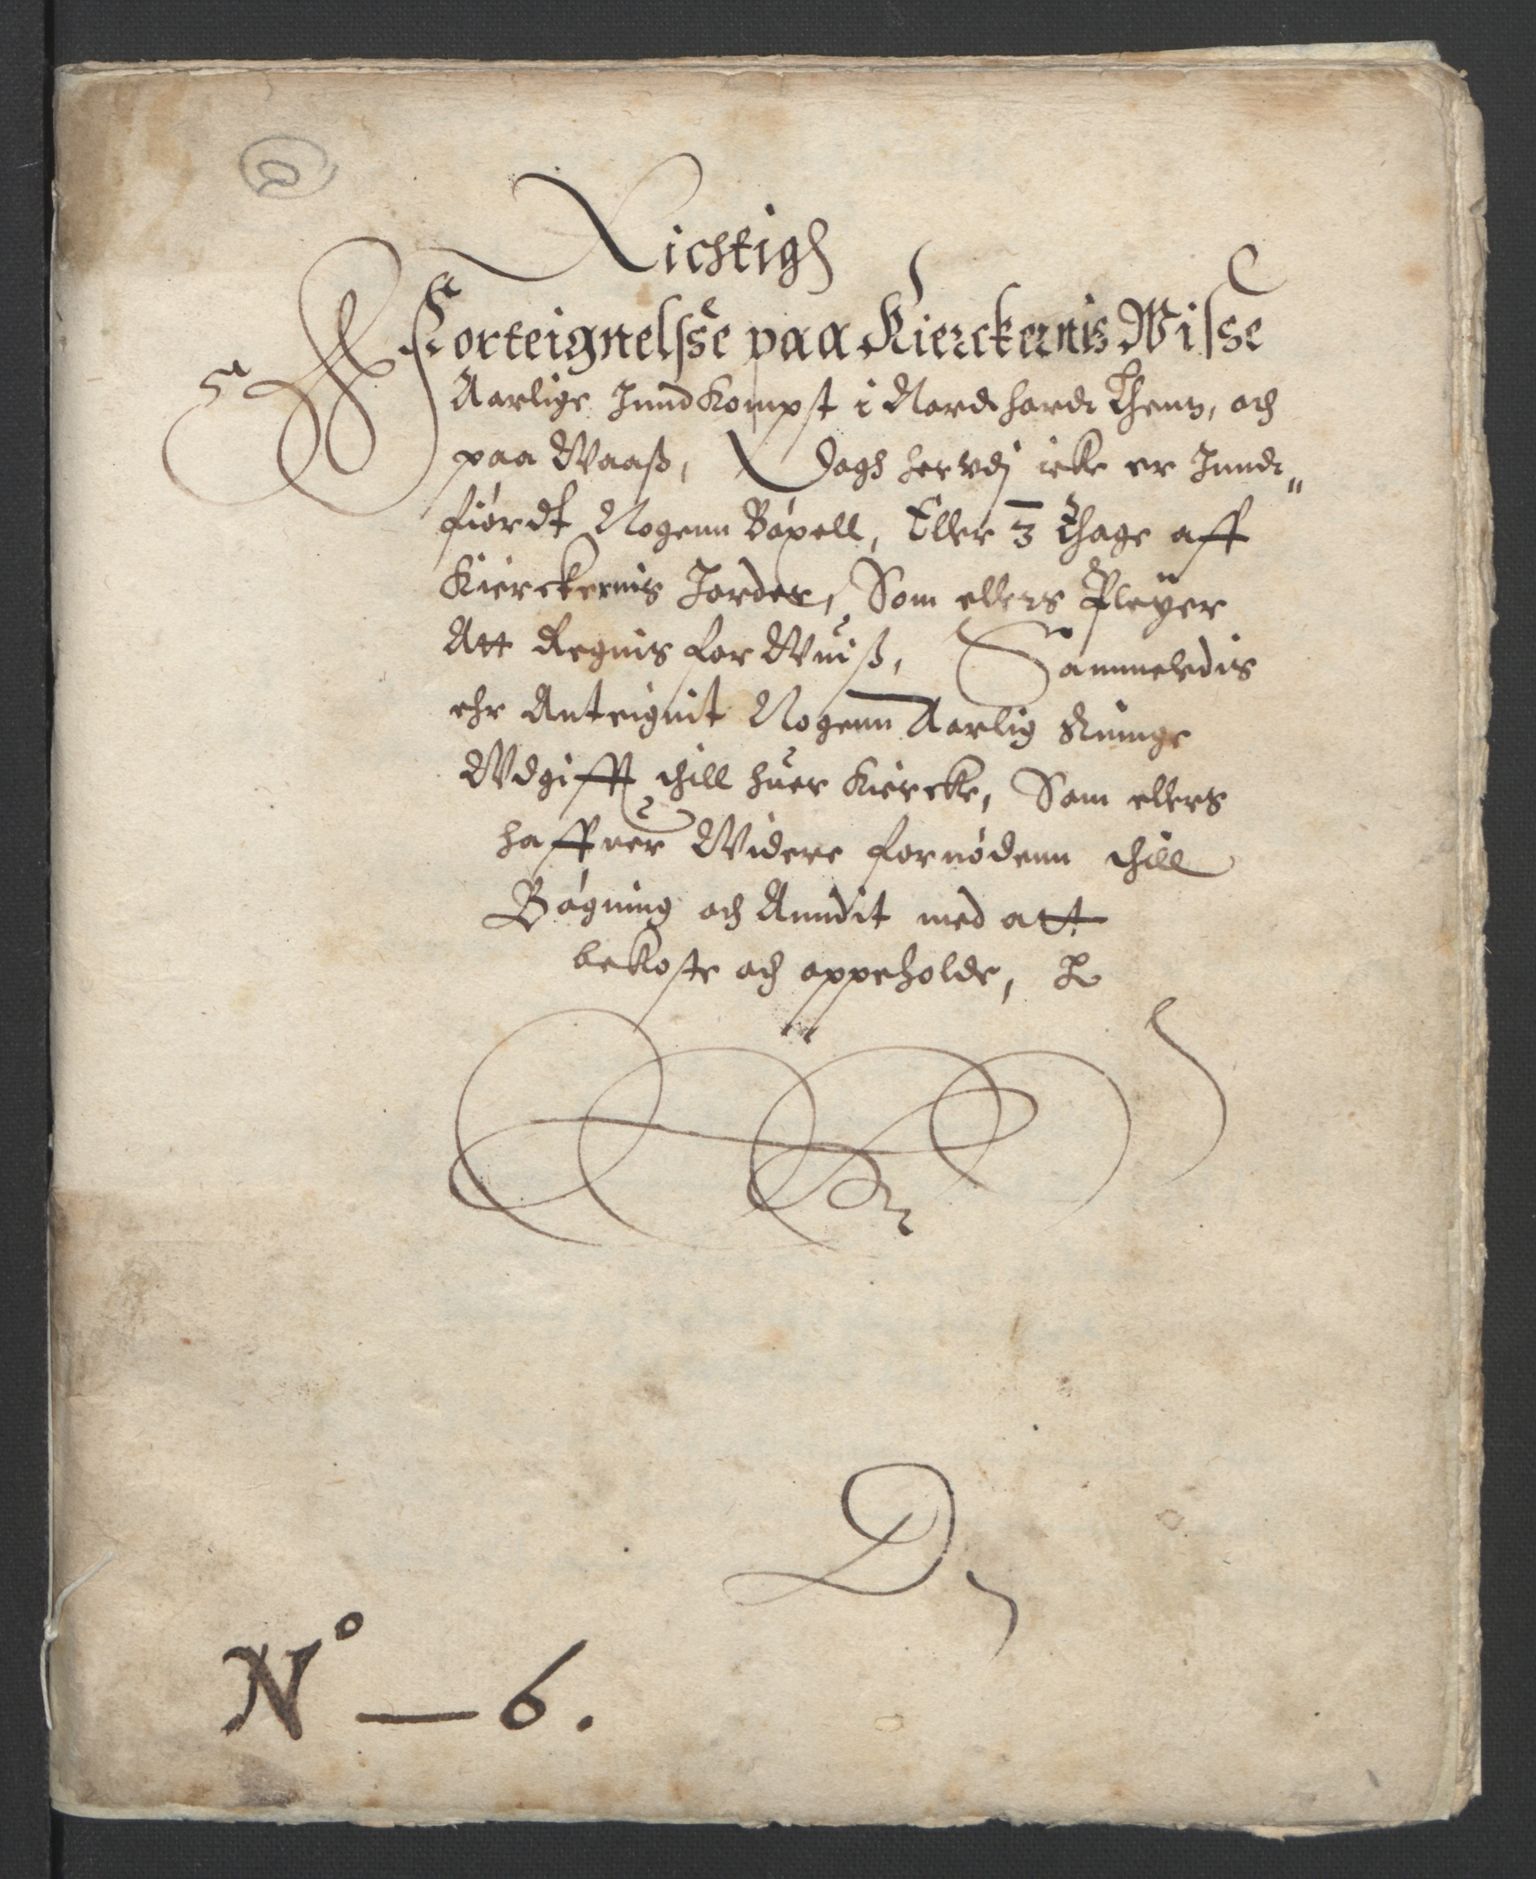 Richtigh
Forteignelsse paa Kierckernis Wisse
Aarlige Jnndkompst i Nordhordt Lhenn, och
paa Waaß, Dogh hervdj icke er Jnnd„
fiørdt Nogenn Bøxell, Eller 3 Thage aff
Kierckernis Jorder, Som ellers Pleÿer
Att Regnis for Wuiß, Sammeledis
ehr Anteignit Nogenn Aarlig Ringe
Wdgifft thill huer Kiercke, Som ellers
haffuer Widere fornødenn thill
Bøgning och Anndit med att
bekoste och oppeholde,
D
No — 6.